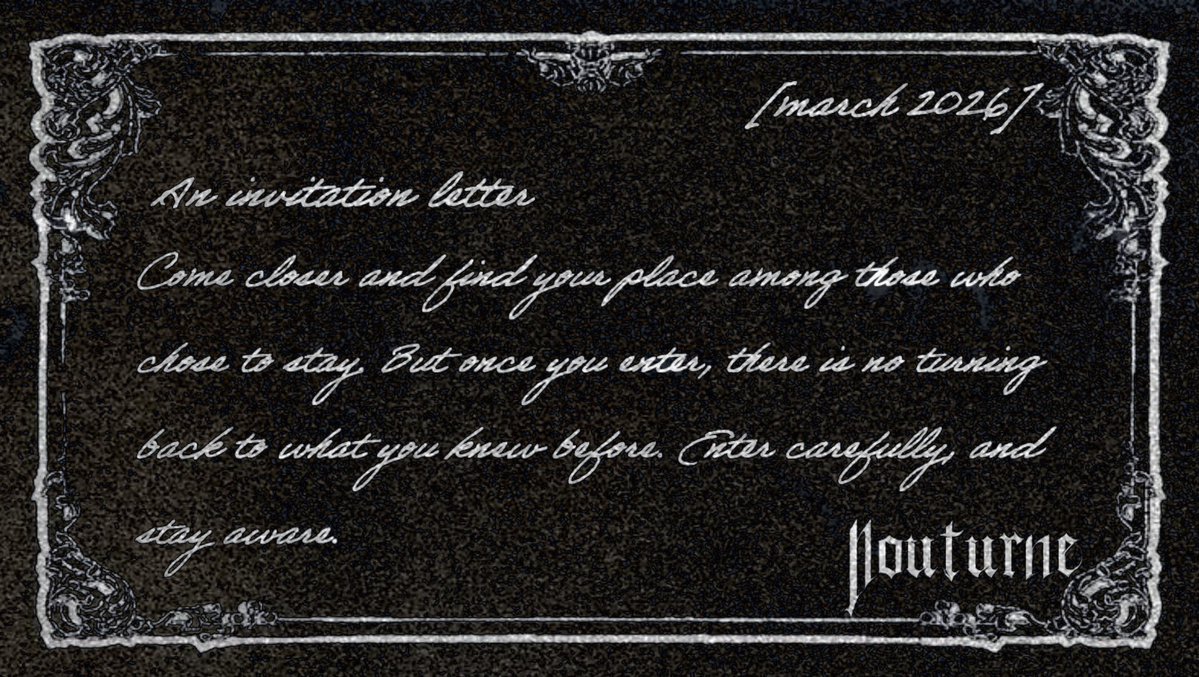 [march 2026]
An invitation letter
Come closer and find your place among those who
chose to stay. But once you enter, there is no turning
back to what you knew before. Enter carefully, and
stay aware.
Nouturne